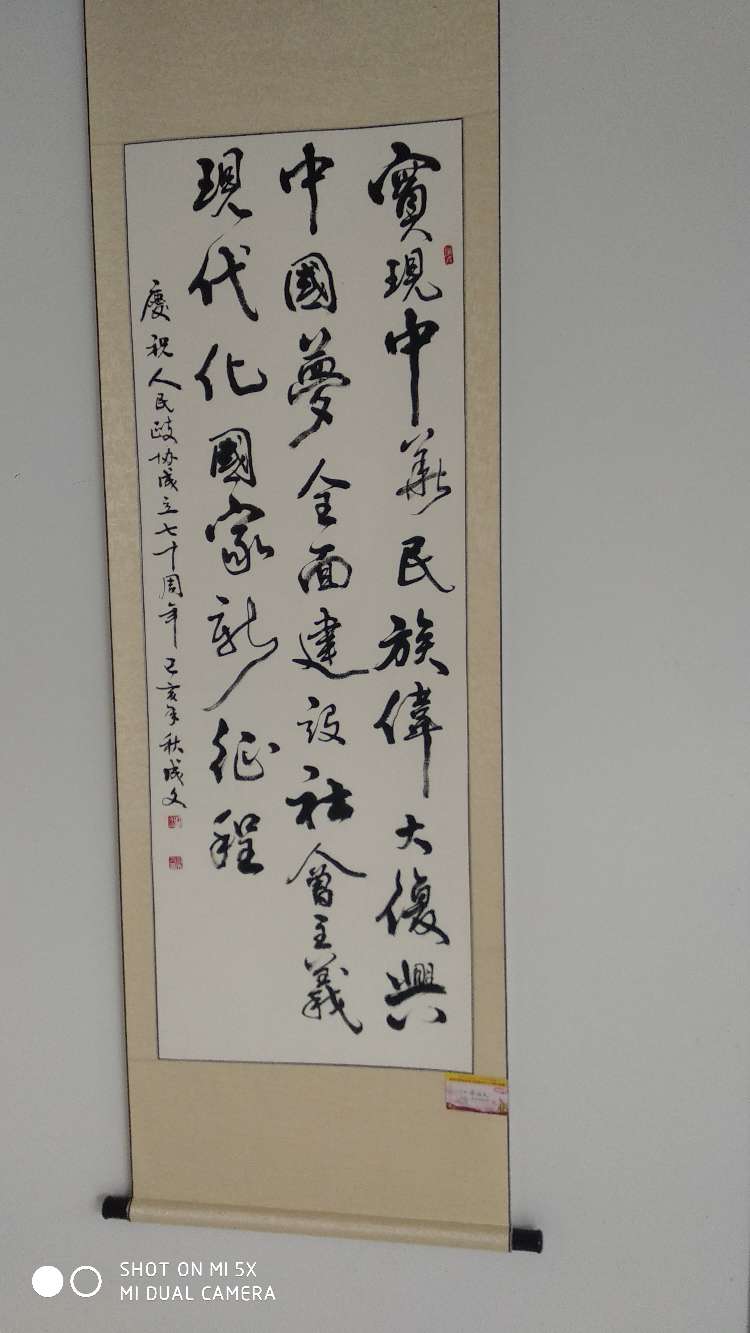 實現中華民族偉大復興
中國夢全面建設社會主義
現代化國家新征程
慶祝人民政协成立七十周年 己亥年秋成文
SHOT ON MI 5X
MI DUAL CAMERA